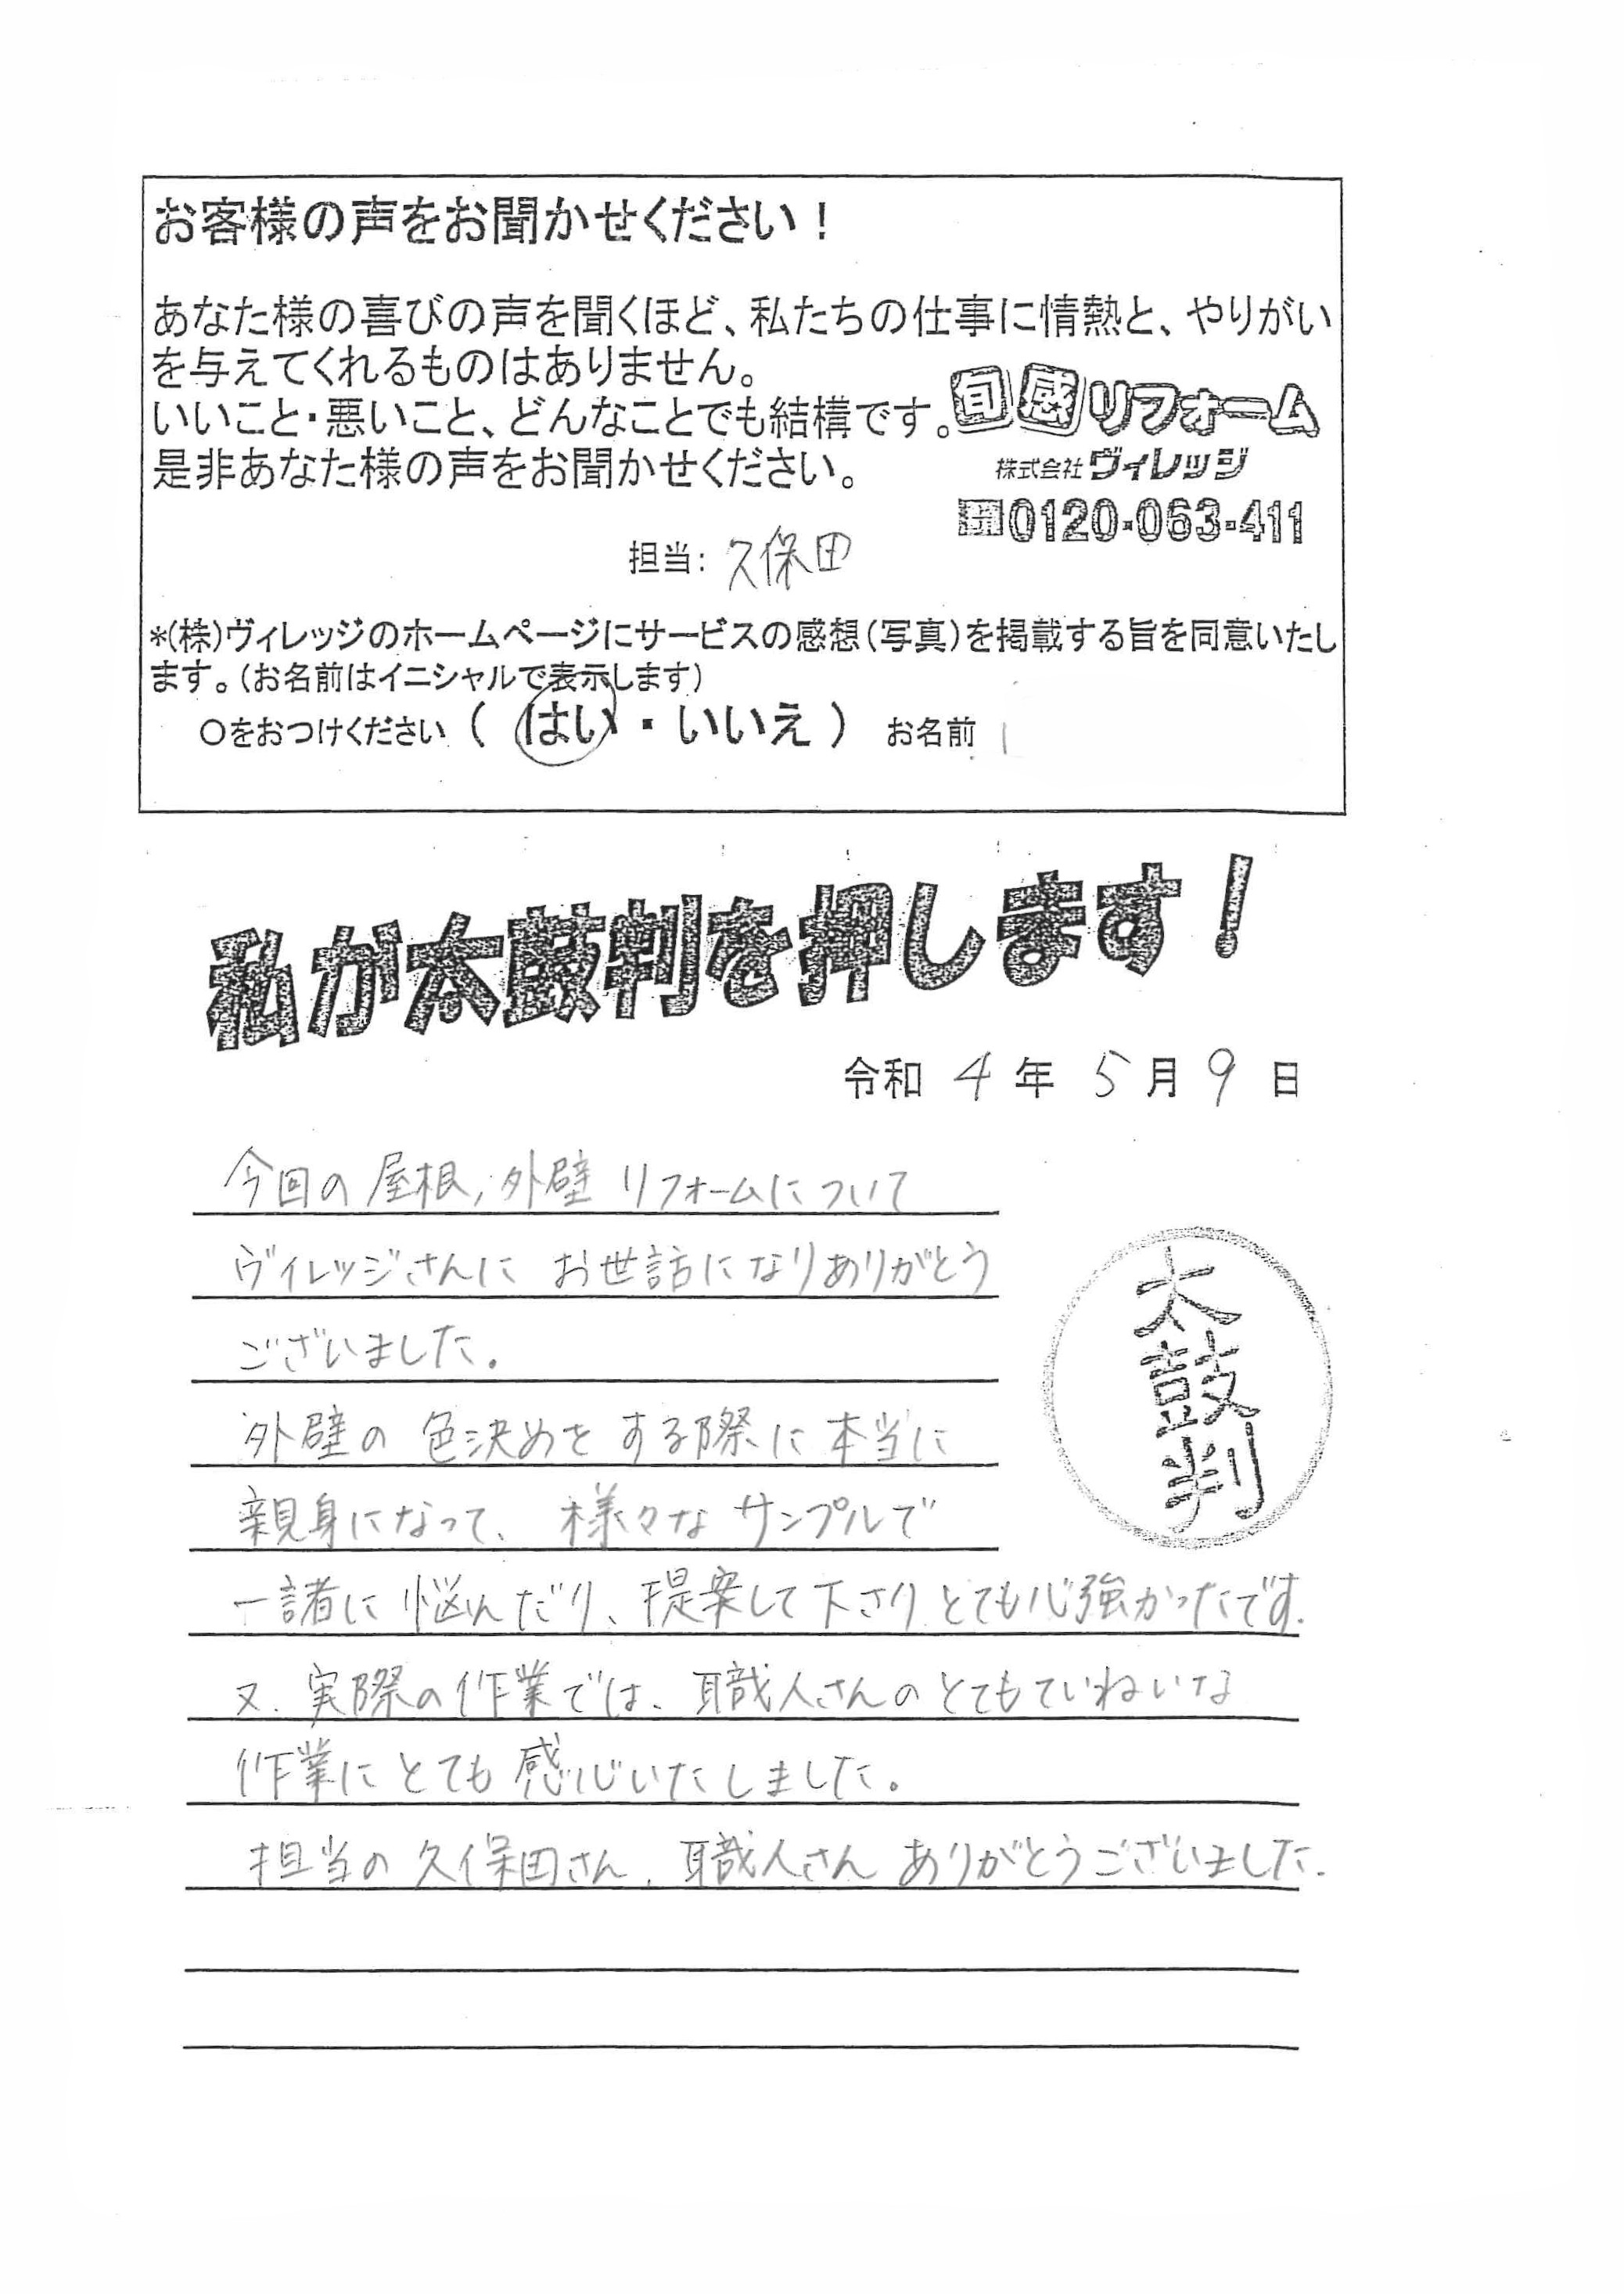 お客様の声をお聞かせください！
あなた様の喜びの声を聞くほど、私たちの仕事に情熱と、やりがい
を与えてくれるものはありません。
いいこと・悪いこと、どんなことでも結構です。
是非あなた様の声をお聞かせください。
旬感リフォーム
株式会社ヴィレッジ
0120-063-411
担当：久保田
*(株)ヴィレッジのホームページにサービスの感想(写真)を掲載する旨を同意いたし
ます。(お名前はイニシャルで表示します)
○をおつけください（はい・いいえ） お名前
私が太鼓判を押します！
令和 4 年 5 月 9 日
今回の屋根、外壁リフォームについて
ヴィレッジさんに お世話になりありがとう
ございました。
外壁の 色決めを する際に 本当に
親身になって、様々な サンプルで
一諸に 悩んだり、提案して下さり とても心強かったです.
又、実際の作業では、職人さんの とてもていねいな
作業にとても 感心いたしました。
担当の 久保田さん、職人さん ありがとうございました.
太鼓判